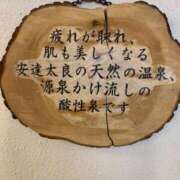 疲れが取れ、
肌も美しくなる
安達太良の天然の温泉、
源泉かけ流しの
酸性泉です